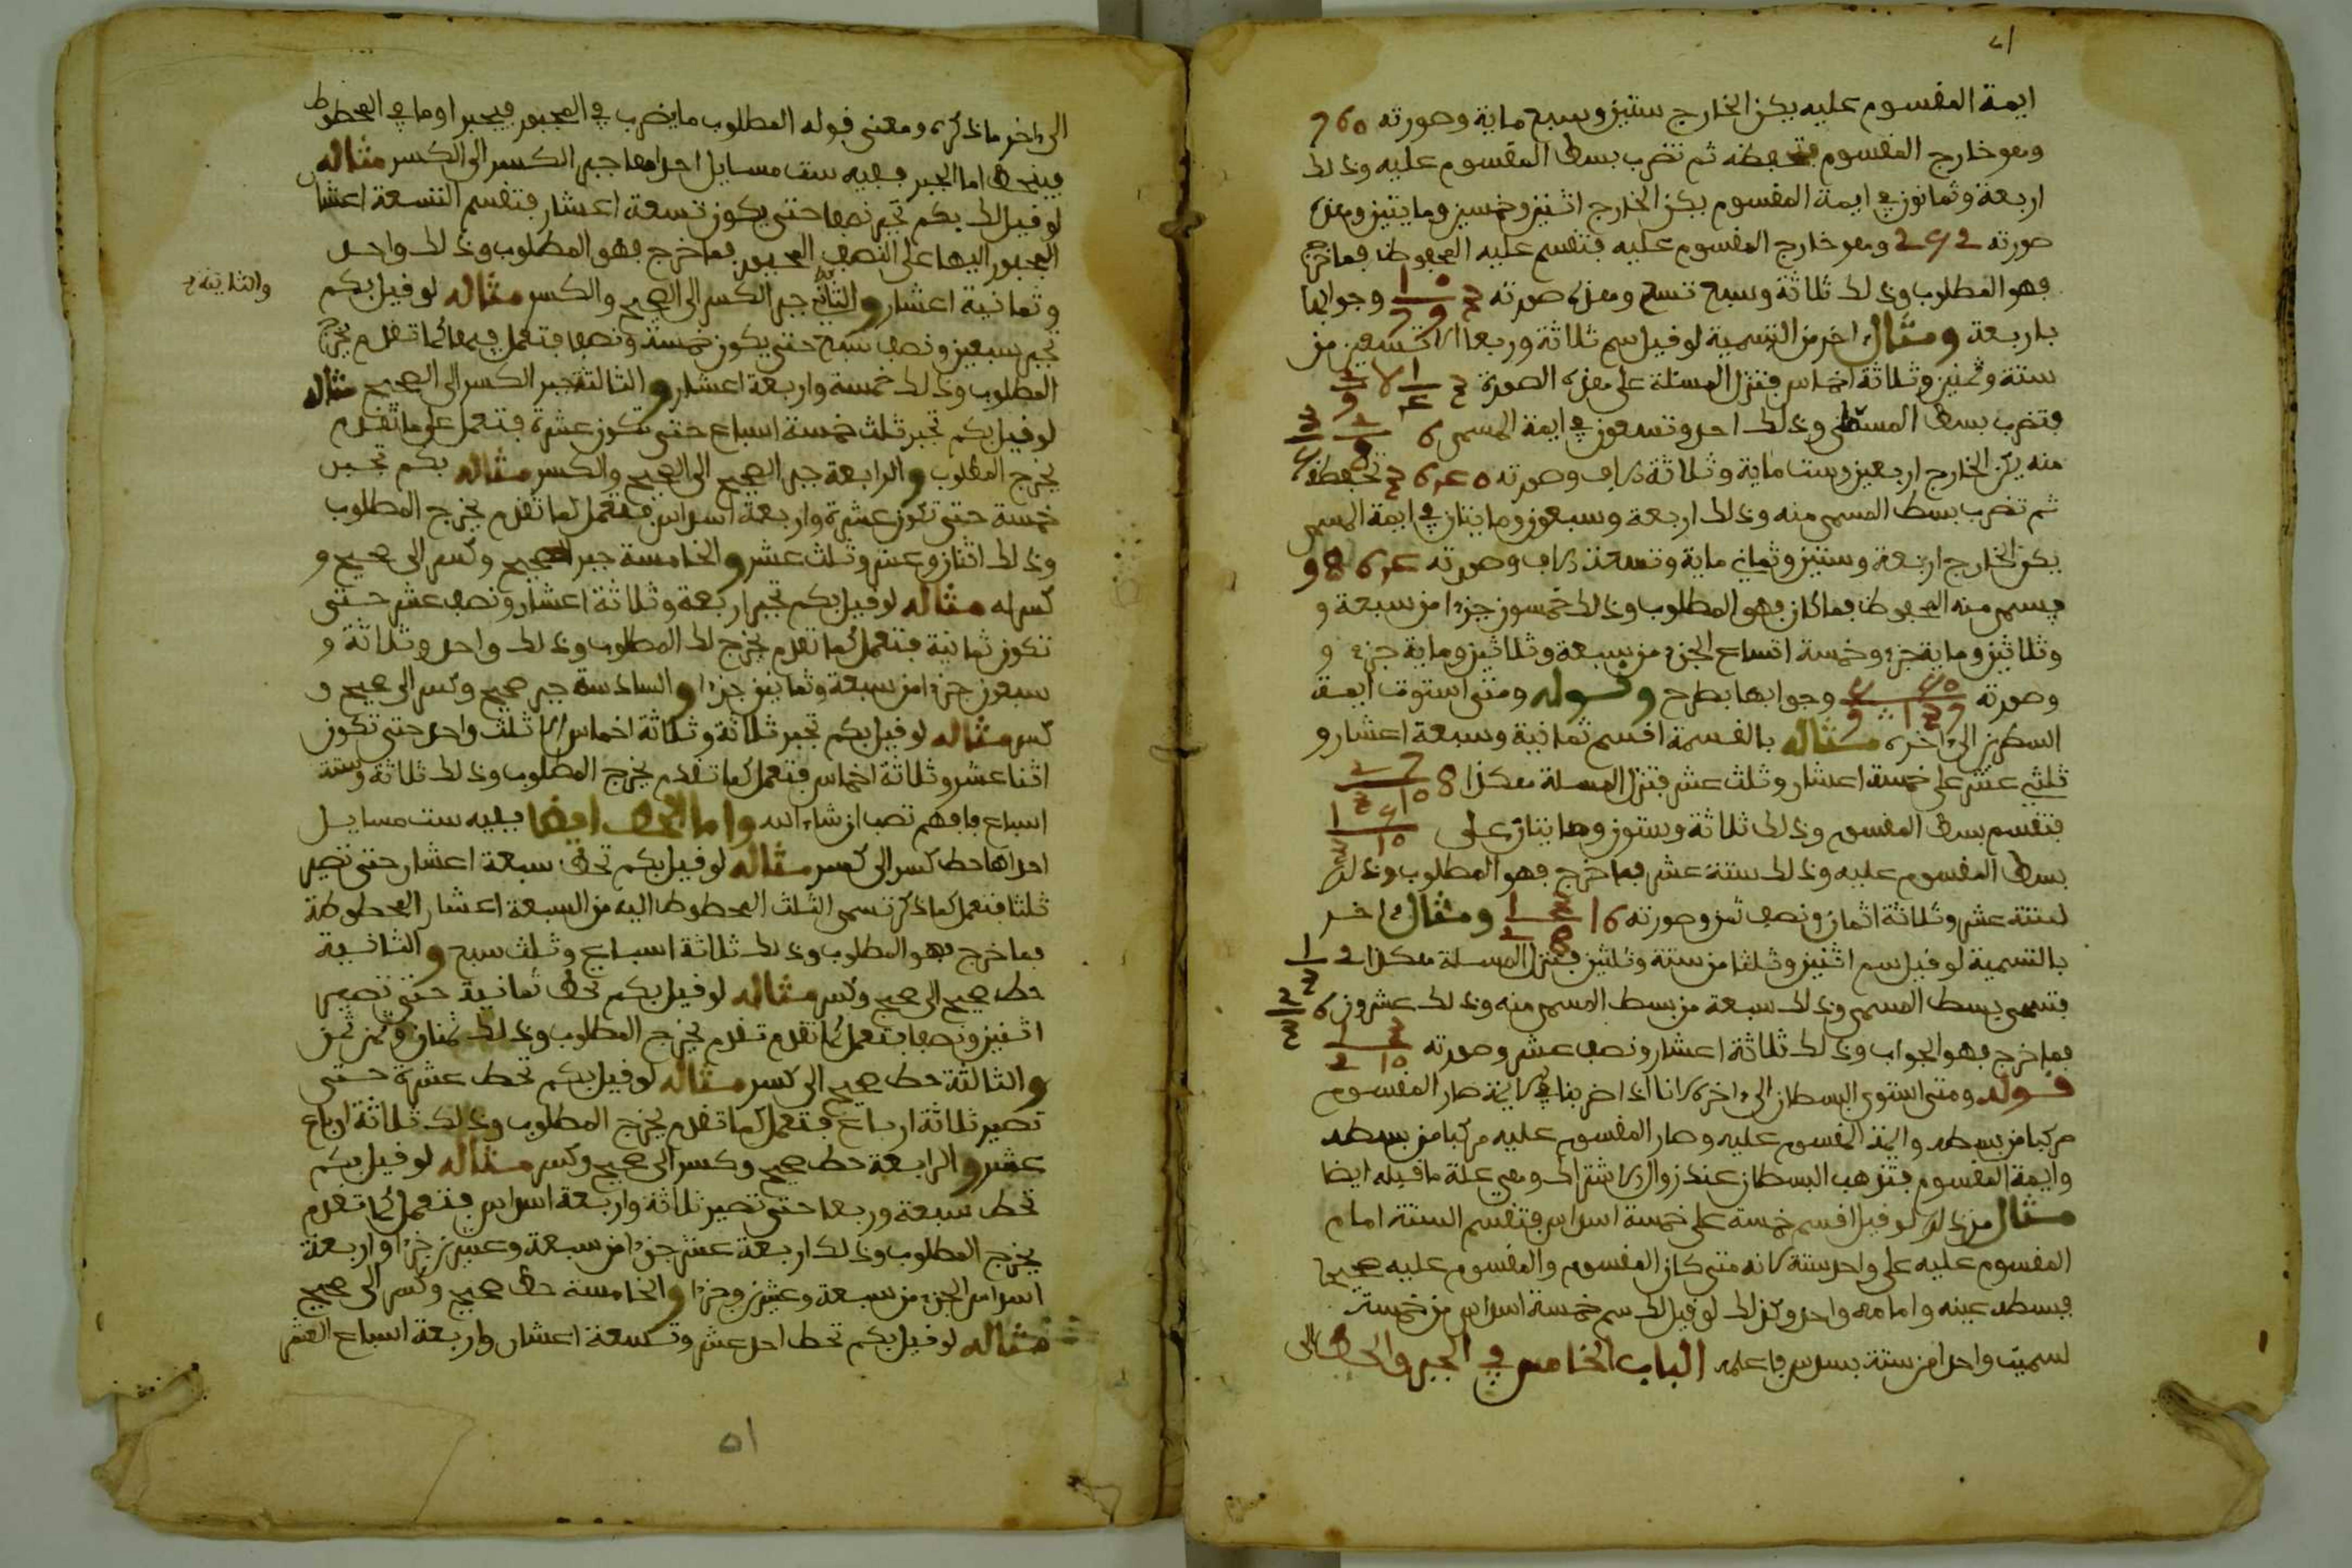 ايمة المقسوم عليه يكن الخارج ستين وسبع ماية وصورته 760
وهو خارج المقسوم فتحفظه ثم تضرب بسط المقسوم عليه وذلك
اربعة وثمانون في ايمة المقسوم يكن الخارج اثنين وخمسين ومايتين وهذه
صورته 252 وهو خارج المقسوم عليه فتقسم عليه المحفوظ فما خرج
فهو المطلوب وذلك ثلاثة وسبع تسع وهذه صورته وجوابها
باربعة ومثال اخر من التسمية لو قيل سم ثلاثة وربعا الا تسعين من
ستة وثمنين وثلاثة اخماس فتنزل المسئلة على هذه الصورة
فتضرب بسط المسمى وذلك احد وتسعون في ايمة المسمى
منه يكن الخارج اربعين وست ماية وثلاثة ءالاف وصورته 3640 تحفظه
ثم تضرب بسط المسمى منه وذلك اربعة وسبعون ومايتان في ايمة المسمى
يكن الخارج اربعة وستين وثماني ماية وتسعة ءالاف وصورته 9864
فسمي منه المحفوظ فما كان فهو المطلوب وذلك خمسون جزءا من سبعة و
وثلاثين وماية جزء وخمسة اتساع الجزء من سبعة وثلاثين وماية جزء و
وصورته وجوابها بطرح وقوله ومتى استوت ايمة
السطرين الى ءاخره مثاله بالقسمة اقسم ثمانية وسبعة اعشار و
ثلثي عشر على خمسة اعشار وثلث عشر فتنزل المسئلة هكذا
فتقسم بسط المقسوم وذلك ثلاثة وستون ومايتان على
بسط المقسوم عليه وذلك ستة عشر فما خرج فهو المطلوب وذلك
لستة عشر وثلاثة اثمان ونصف ثمن وصورته ومثال ءاخر
بالتسمية لو قيل سم اثنين وثلثا من ستة وثلثين فتنزل المسئلة هكذا
فتسمي بسط المسمى وذلك سبعة من بسط المسمى منه وذلك عشرون
فما خرج فهو الجواب وذلك ثلاثة اعشار ونصف عشر وصورته
قوله ومتى استوى البسطان الى ءاخره لانا اذا ضربنا في الايمة صار المقسوم
مركبا من بسطه وايمة المقسوم عليه وصار المقسوم عليه مركبا من بسطه
وايمة المقسوم فتذهب البسطان عند زوال الاشتراك وهي علة ما قبله ايضا
مثال من ذلك لو قيل اقسم خمسة على خمسة اسداس فتقسم الستة امام
المقسوم عليه على واحد ستة لانه متى كان المقسوم والمقسوم عليه صحيحا
فبسطه عينه وامامه واحد وكذلك لو قيل لك سم خمسة اسداس من خمسة
لسميت واحدا من ستة بسدس فاعلمه الباب الخامس في الجبر والحط الى
الى ءاخر ما ذكره ومعنى قوله المطلوب ما يضرب في المجبور فيجبر او ما في المحطوط
فينحط اما الجبر ففيه ست مسايل احدامها جبر الكسر الى الكسر مثاله
لو قيل لك بكم تجبر نصفا حتى يكون تسعة اعشار فتقسم التسعة اعشار
المجبور اليها على النصف المجبور فما خرج فهو المطلوب وذلك واحد
وثمانية اعشار والثاني جبر الكسر الى الصحيح والكسر مثاله لو قيل بكم
والثانية
تجبر سبعين ونصف سبع حتى يكون خمسة ونصفا فتعمل فيها كما تقدم يخرج
المطلوب وذلك خمسة واربعة اعشار والثالثة جبر الكسر الى الصحيح مثاله
لو قيل بكم تجبر ثلث خمسة اسباع حتى تكون عشرة فتعمل على ما تقدم
يخرج المطلوب والرابعة جبر الصحيح الى الصحيح والكسر مثاله بكم تجبر
خمسة حتى تكون عشرة واربعة اسداس فتعمل كما تقدم يخرج المطلوب
وذلك اثنان وعشر وثلث عشر والخامسة جبر الصحيح وكسر الى صحيح و
كسر له مثاله لو قيل بكم تجبر اربعة وثلاثة اعشار ونصف عشر حتى
تكون ثمانية فتعمل كما تقدم يخرج لك المطلوب وذلك واحد وثلاثة و
سبعون جزءا من سبعة وثمانين جزءا والسادسة جبر صحيح وكسر الى صحيح و
كسر مثاله لو قيل بكم تجبر ثلاثة وثلاثة اخماس الا ثلث واحد حتى تكون
اثنا عشر وثلاثة اخماس فتعمل كما تقدم يخرج المطلوب وذلك ثلاثة وستة
اسباع فافهم تصب ان شاء الله واما الحط ايضا ففيه ست مسايل
احداها حط كسر الى كسر مثاله لو قيل بكم تحط سبعة اعشار حتى تصير
ثلثا فتعمل كما ذكر تسمي الثلث المحطوط اليه من السبعة اعشار المحطوطة
فما خرج فهو المطلوب وذلك ثلاثة اسباع وثلث سبع والثانية
حط صحيح الى صحيح وكسر مثاله لو قيل بكم تحط ثمانية حتى تصير
اثنين ونصفا فتعمل كما تقدم تقدم يخرج المطلوب وذلك ثمنان ونصف ثمن
والثالثة حط صحيح الى كسر مثاله لو قيل بكم تحط عشرة حتى
تصير ثلاثة ارباع فتعمل كما تقدم يخرج المطلوب وذلك ثلاثة ارباع
عشر والرابعة حط صحيح وكسر الى صحيح وكسر مثاله لو قيل بكم
تحط سبعة وربعا حتى تصير ثلاثة واربعة اسداس فتعمل كما تقدم
يخرج المطلوب وذلك اربعة عشر جزءا من سبعة وعشرين جزءا واربعة
اسداس الجزء من سبعة وعشرين جزءا والخامسة حط صحيح وكسر الى صحيح
مثاله لو قيل بكم تحط احد عشر وتسعة اعشار واربعة اسباع العشر
51